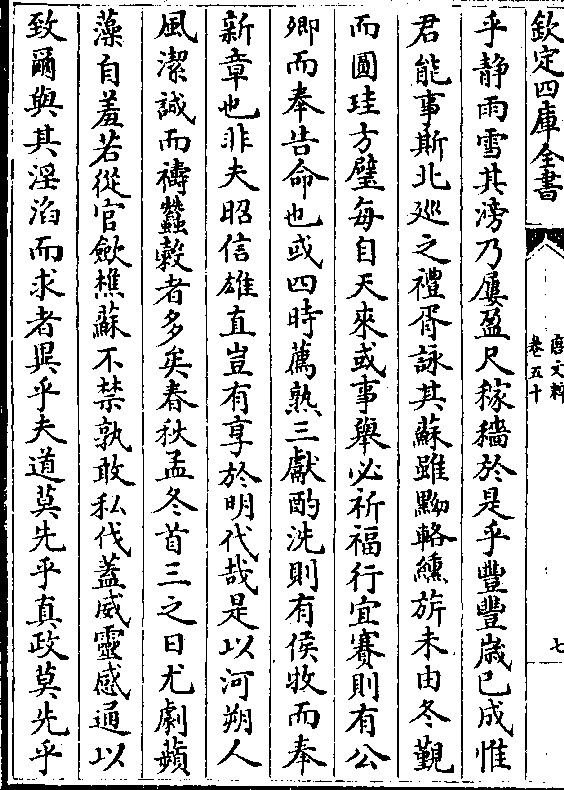 欽定四庫全書
唐文粹
卷五十
七
乎靜雨雪其滂乃屢盈尺稼穡於是乎豐豐歲已成惟
君能事斯北廵之禮胥詠其蘇雖黝輅纁旂未由冬覲
而圓珪方璧每自天來或事舉必祈福行宜賽則有公
卿而奉告命也或四時薦熟三獻酌洗則有侯牧而奉
新章也非夫昭信雄直豈有享於明代哉是以河朔人
風潔誠而禱蠶榖者多矣春秋孟冬首三之日尤劇蘋
藻自羞若從官歛樵蘇不禁孰敢私伐蓋威靈感通以
致爾與其淫滔而求者異乎夫道莫先乎真政莫先乎